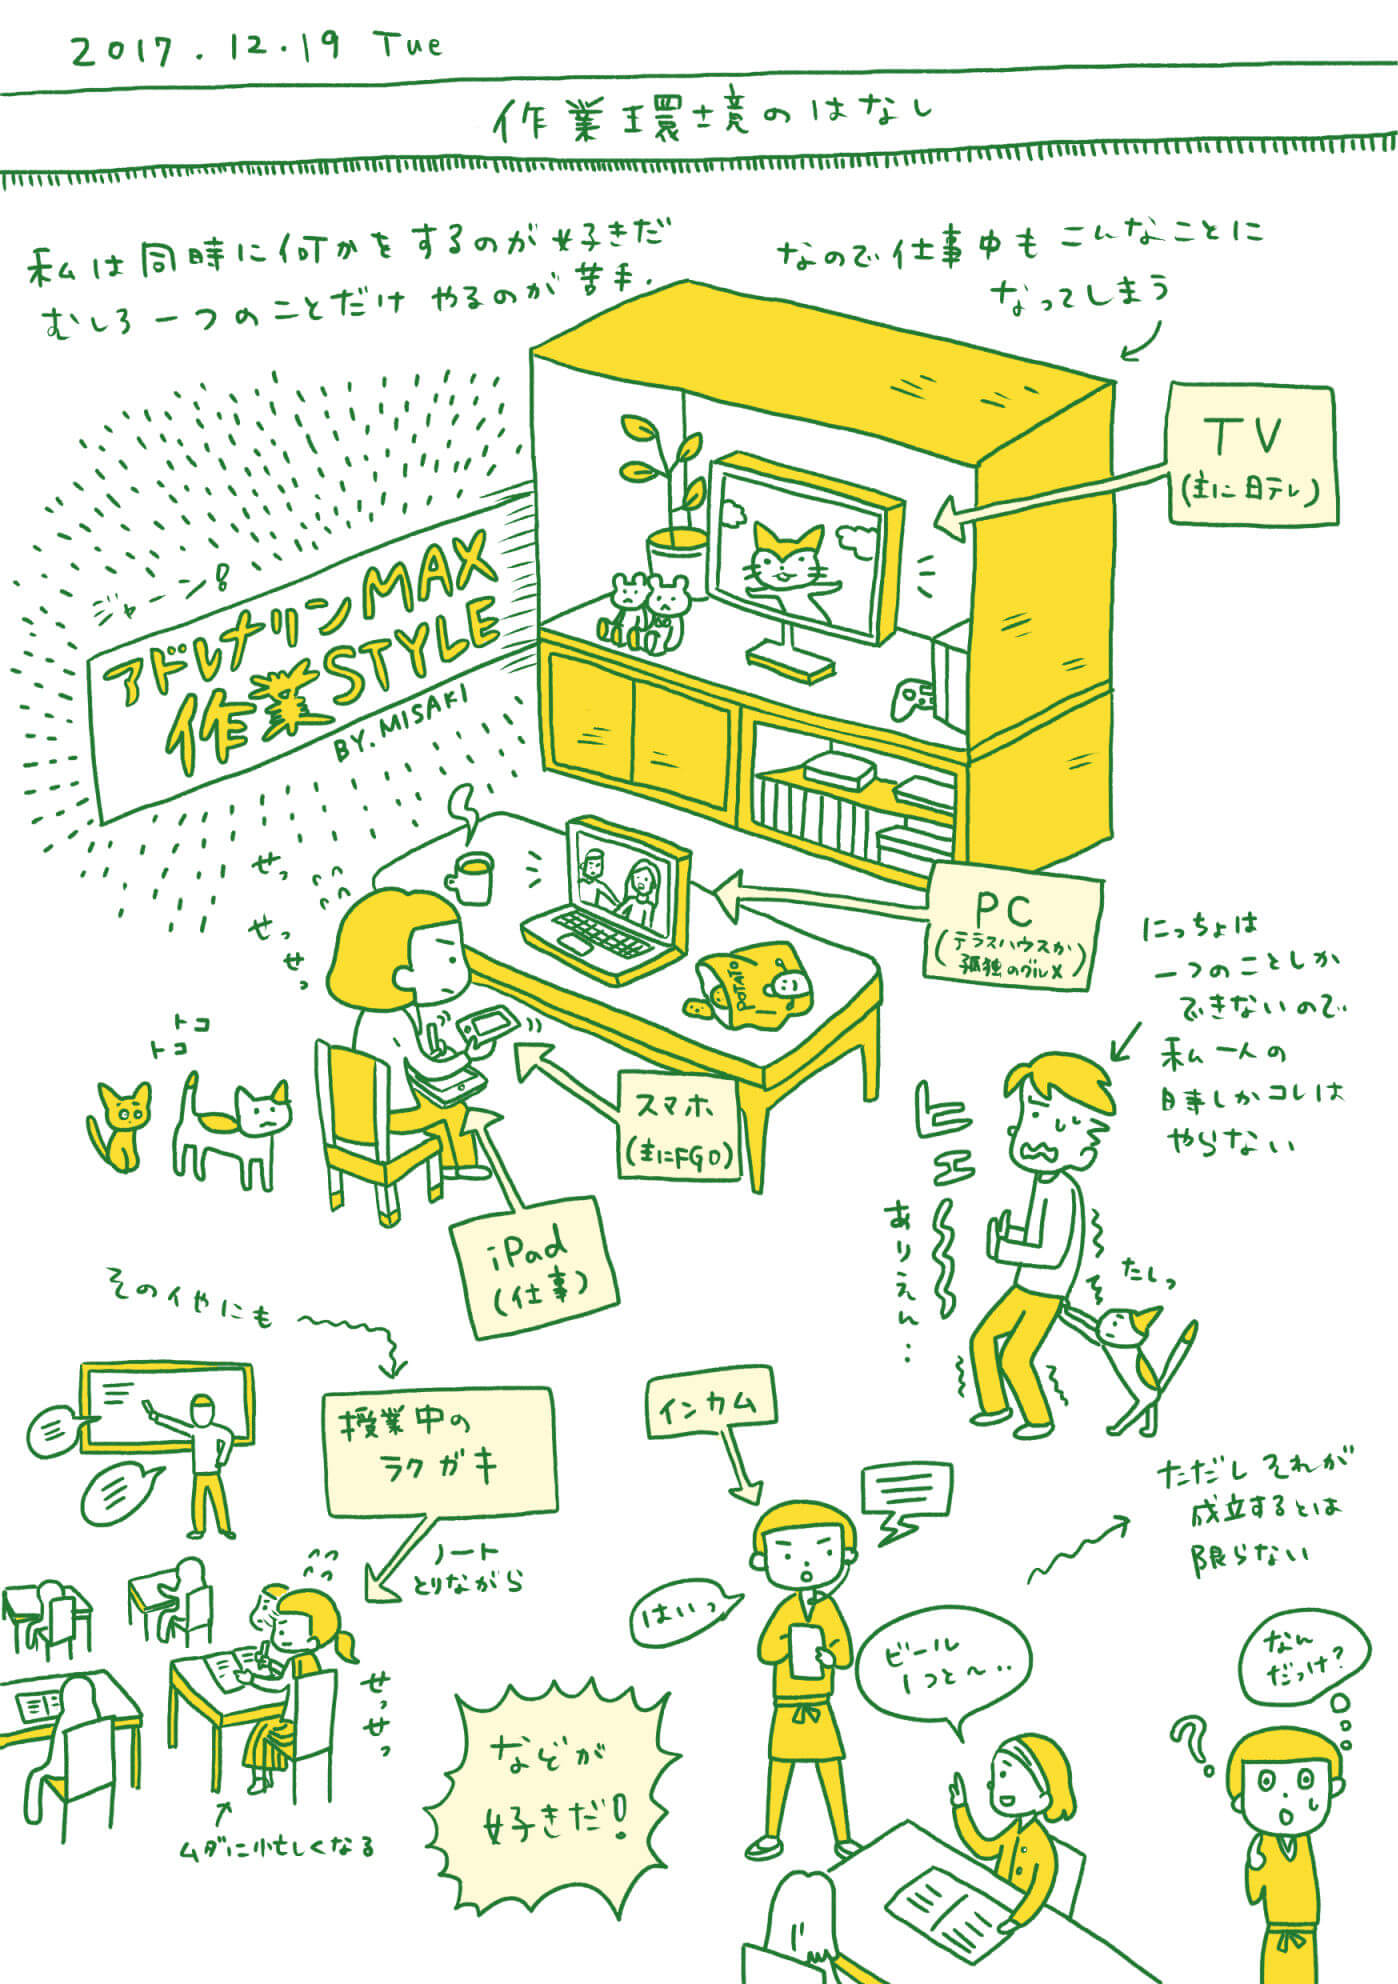 2017.12.19 Tue
作業環境のはなし
私は同時に何かをするのが好きだ
むしろ一つのことだけやるのが苦手.
なので仕事中もこんなことに
なってしまう
TV
(主に日テレ)
ジャーン!
アドレナリンMAX
作業STYLE
BY.MISAKI
せっ
せっ
せっ
PC
(テラスハウスか
孤独のグルメ)
POTATO
トコ
トコ
スマホ
(主にFGO)
iPad
(仕事)
にっちょは
一つのことしか
できないので
私一人の
時しかコレは
やらない
ヒエ
ありえん‥
たしっ
その他にも
授業中の
ラクガキ
ノート
とりながら
せっせっ
ムダに忙しくなる
などが
好きだ!
インカム
はいっ
ビール
1つと〜‥
ただしそれが
成立するとは
限らない
なん
だっけ?
?